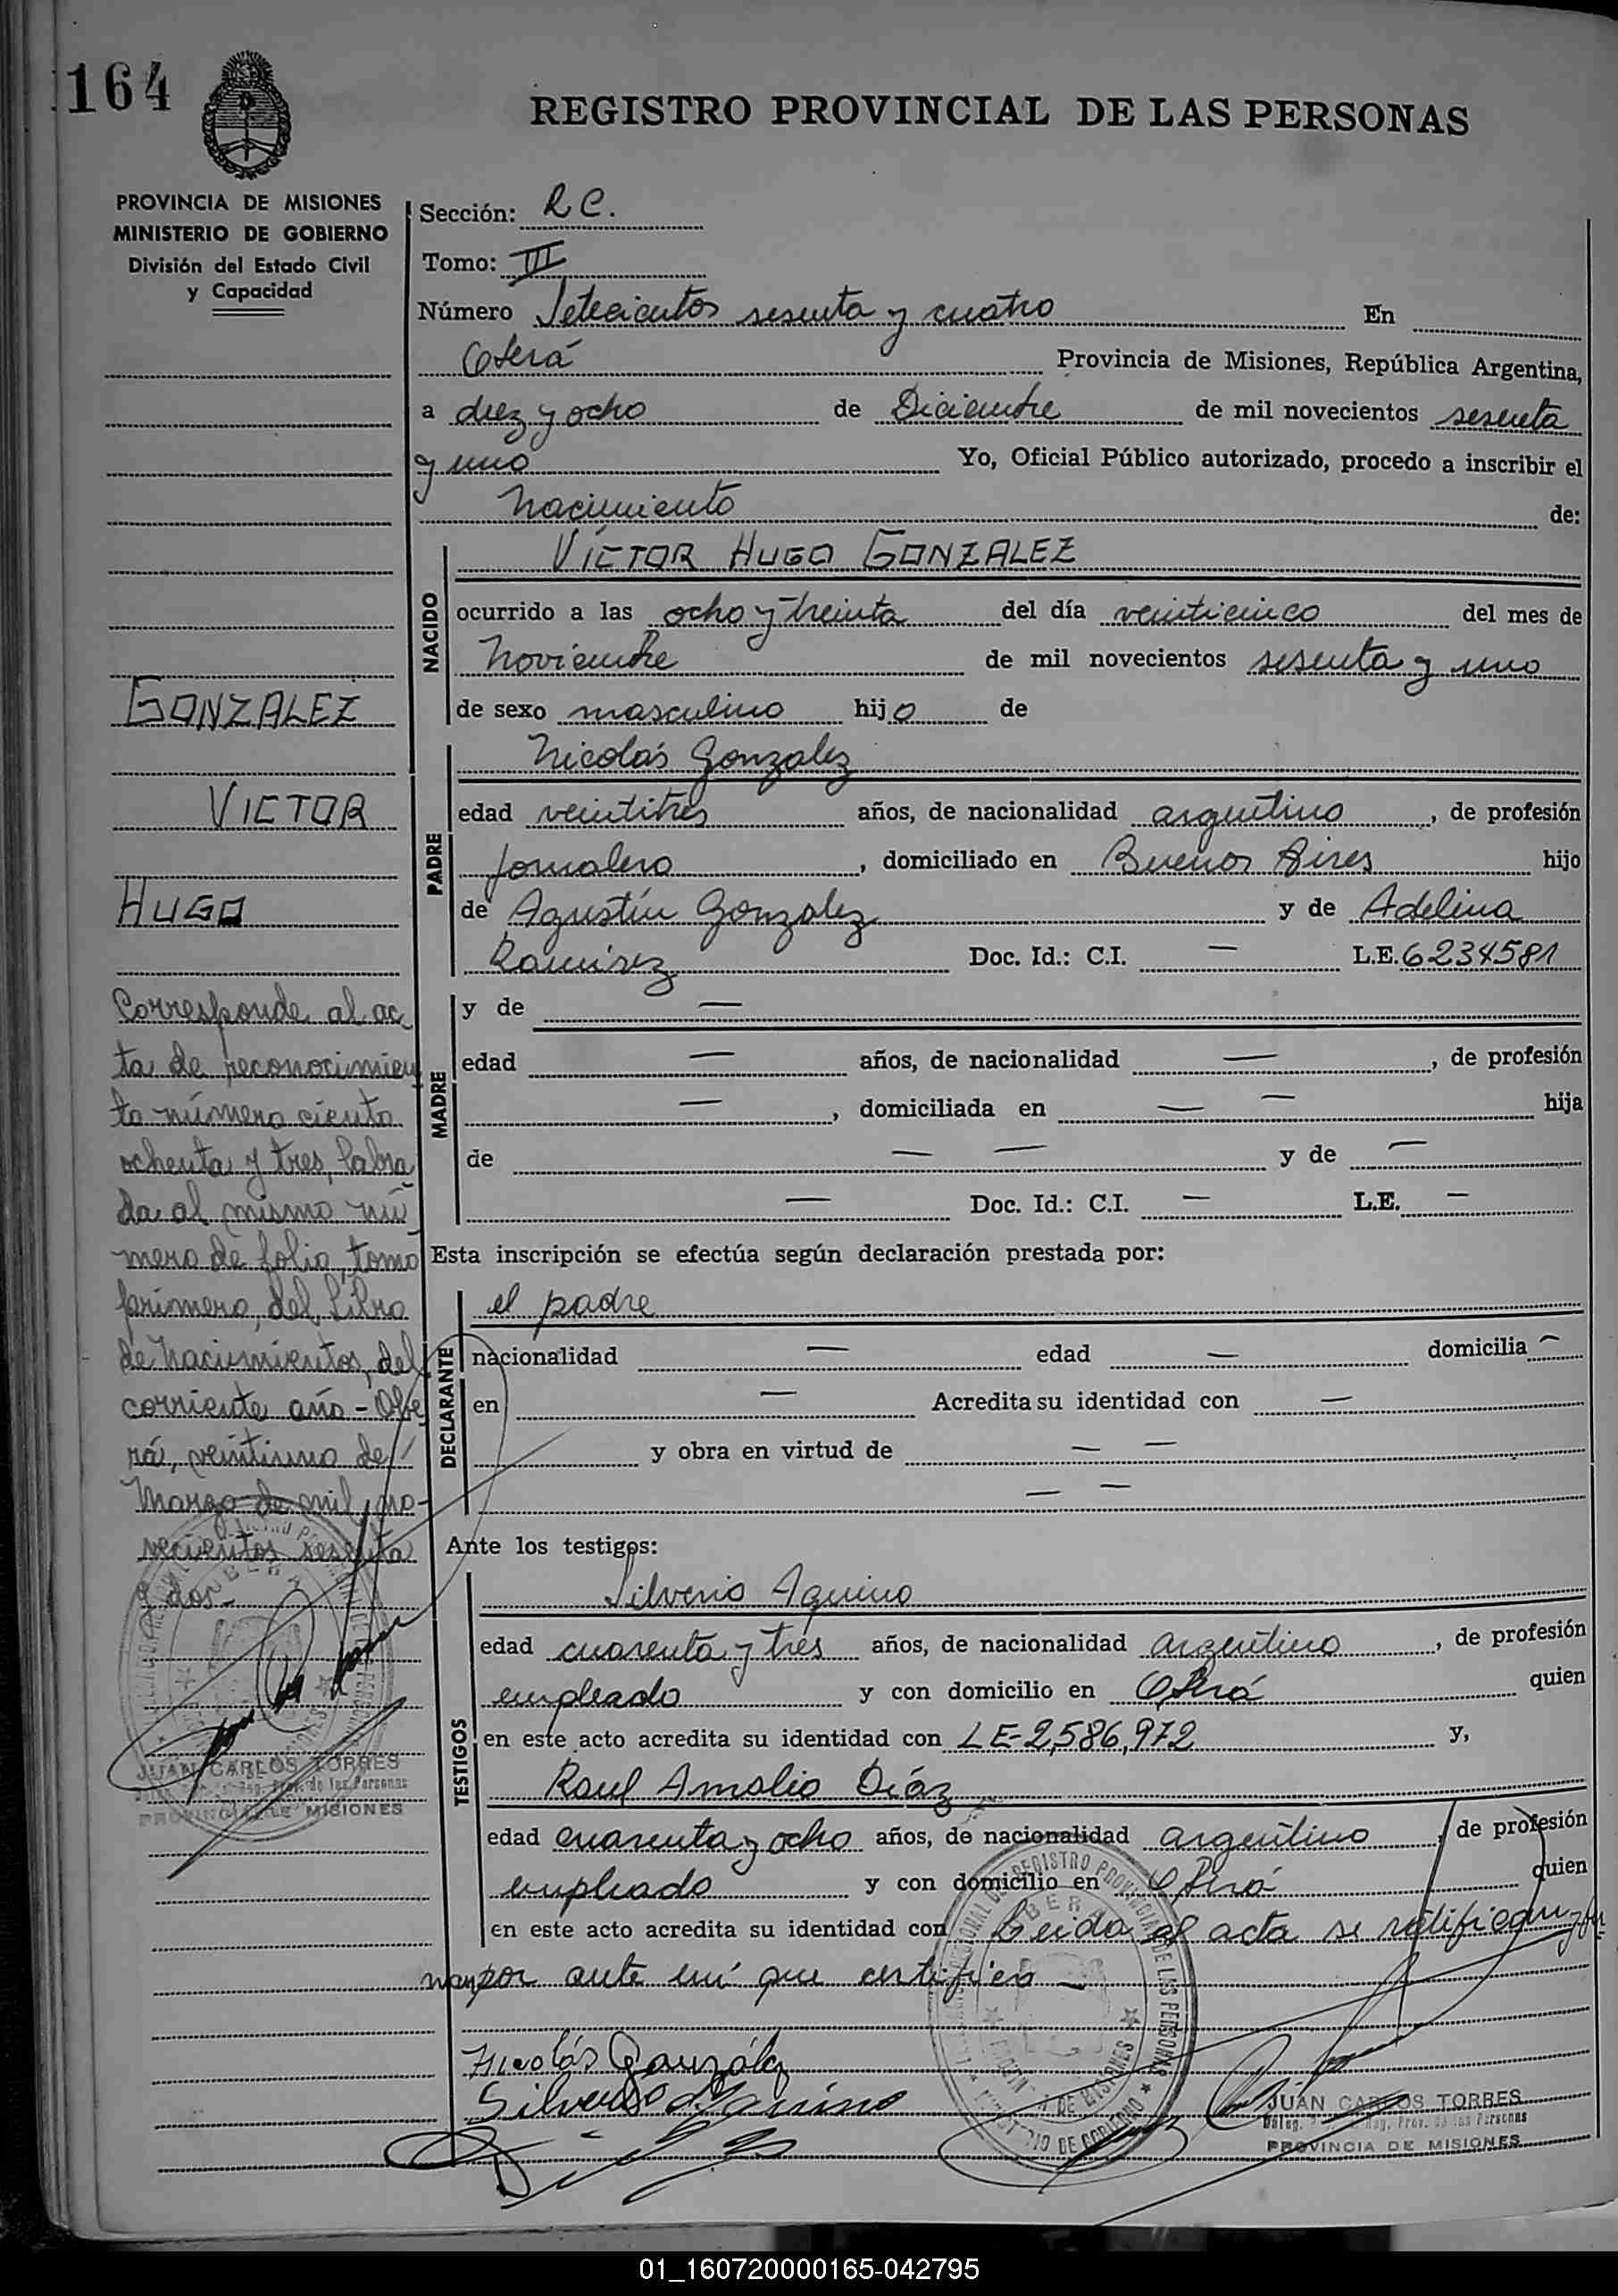 164
REGISTRO PROVINCIAL DE LAS PERSONAS
PROVINCIA DE MISIONES
MINISTERIO DE GOBIERNO
División del Estado Civil
y Capacidad
Sección: R C.
Tomo: III
Número Setecientos sesenta y cuatro En
Oberá Provincia de Misiones, República Argentina,
a diez y ocho de Diciembre de mil novecientos sesenta
y uno Yo, Oficial Público autorizado, procedo a inscribir el
Nacimiento de:
NACIDO
VÍCTOR HUGO GONZALEZ
ocurrido a las ocho y treinta del día veinticinco del mes de
Noviembre de mil novecientos sesenta y uno
de sexo masculino hijo de
PADRE
Nicolás Gonzalez
edad veintitres años, de nacionalidad argentino, de profesión
Jornalero, domiciliado en Buenos Aires hijo
de Agustín Gonzalez y de Adelina
Ramirez Doc. Id.: C.I. — L.E. 6234581
MADRE
y de —
edad — años, de nacionalidad —, de profesión
—, domiciliada en — — hija
de — — y de —
— Doc. Id.: C.I. — L.E. —
Esta inscripción se efectúa según declaración prestada por:
DECLARANTE
el padre
nacionalidad — edad — domicilia —
en — Acredita su identidad con —
y obra en virtud de — —
— —
Ante los testigos:
TESTIGOS
Silverio Aquino
edad cuarenta y tres años, de nacionalidad argentino, de profesión
empleado y con domicilio en Oberá quien
en este acto acredita su identidad con LE-2,586,972 y,
Raul Amalio Díaz
edad cuarenta y ocho años, de nacionalidad argentino, de profesión
empleado y con domicilio en Oberá quien
en este acto acredita su identidad con Leida el acta se ratifican y fir
man por ante mí que certifico —
Nicolás González
Silverio Aquino
JUAN CARLOS TORRES
Deleg. Reg. Prov. de las Personas
PROVINCIA DE MISIONES
GONZALEZ
VICTOR
HUGO
Corresponde al ac
ta de reconocimien
to número ciento
ochenta y tres, labra
da al mismo nú
mero de folio, tomo
primero, del Libro
de Nacimientos, del
corriente año - Obe
rá, veintiuno de
Marzo de mil no-
vecientos sesenta
y dos-
OBERA
JUAN CARLOS TORRES
Reg. Prov. de las Personas
PROVINCIA DE MISIONES
REGISTRO PROVINCIAL DE LAS PERSONAS
OBERA
DE MISIONES
01_160720000165-042795